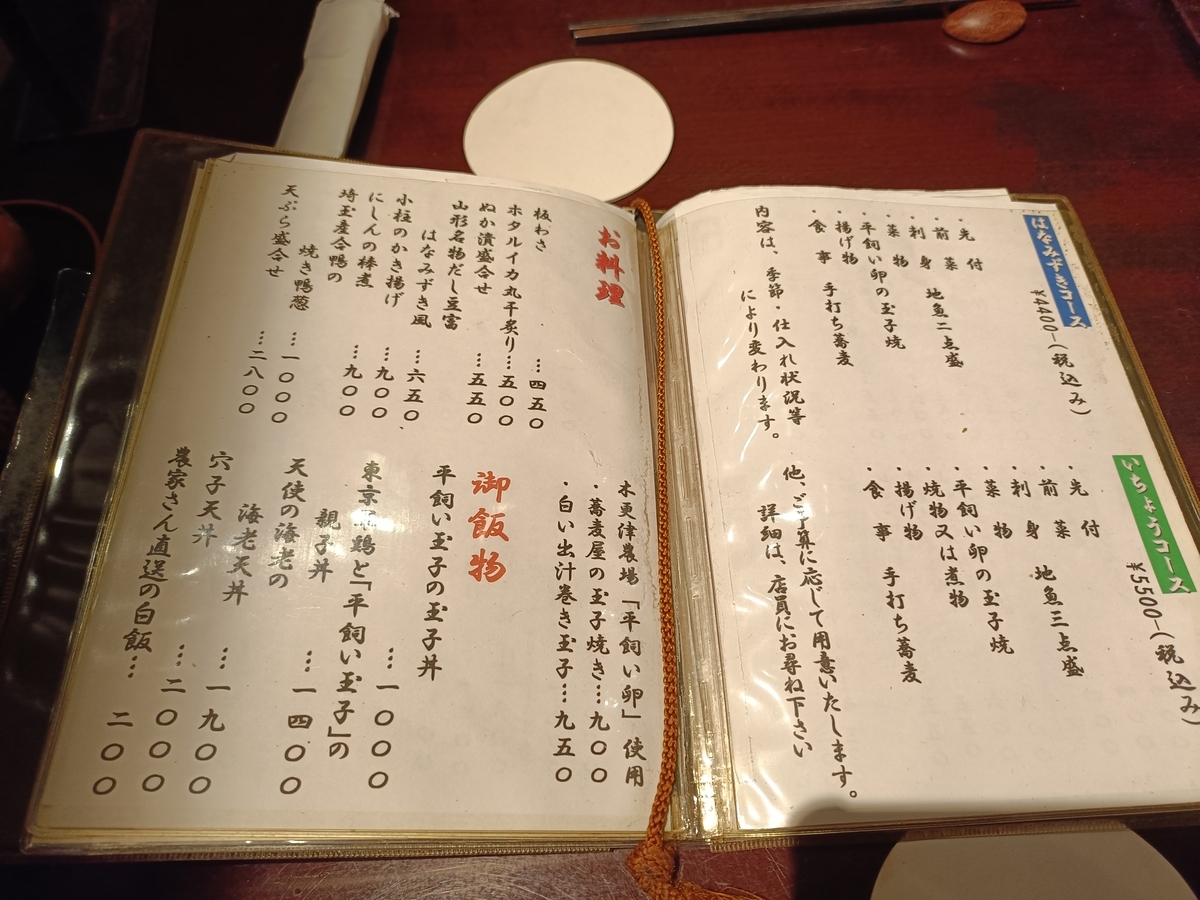 はなみずきコース
¥4400-(税込み)
・先付
・前菜
・刺身 地魚二点盛
・菜物
・平飼い卵の玉子焼
・揚げ物
・食事 手打ち蕎麦
内容は、季節・仕入れ状況等
により変わります。
いちょうコース
¥5500-(税込み)
・先付
・前菜
・刺身 地魚三点盛
・菜物
・平飼い卵の玉子焼
・焼物又は煮物
・揚げ物
・食事 手打ち蕎麦
他、ご予算に応じて用意いたします。
詳細は、店員にお尋ね下さい
お料理
板わさ …四五〇
ホタルイカ丸干炙り…五〇〇
ぬか漬盛合せ …五五〇
山形名物だし豆富
はなみずき風 …六五〇
小柱のかき揚げ …九〇〇
にしんの棒煮 …九〇〇
埼玉産合鴨の
焼き鴨葱 …一〇〇〇
天ぷら盛合せ …二八〇〇
木更津農場「平飼い卵」使用
・蕎麦屋の玉子焼き…九〇〇
・白い出汁巻き玉子…九五〇
御飯物
平飼い玉子の玉子丼
…一〇〇〇
東京 鶏と「平飼い玉子」の
親子丼 …一四〇〇
天使の海老の
海老天丼 …一九〇〇
穴子天丼 …二〇〇〇
農家さん直送の白飯… 二〇〇